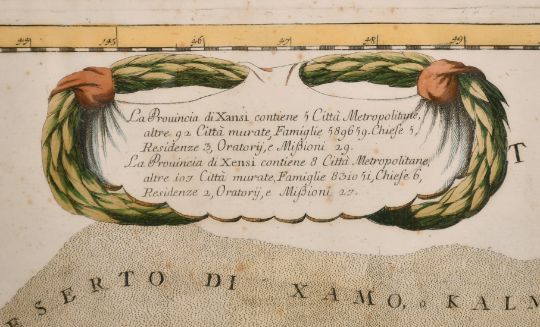 44 45 46 47 48 49
La Provincia di Xansi contiene 5 Città Metropolitane,
altre 92 Città murate, Famiglie 589659. Chiese 5,
Residenze 3, Oratorij, e Mißioni 29.
La Provincia di Xensi contiene 8 Città Metropolitane,
altre 107 Città murate, Famiglie 831051, Chiese 6,
Residenze 2, Oratorij, e Mißioni 27.
T
ESERTO DI XAMO, o KALM